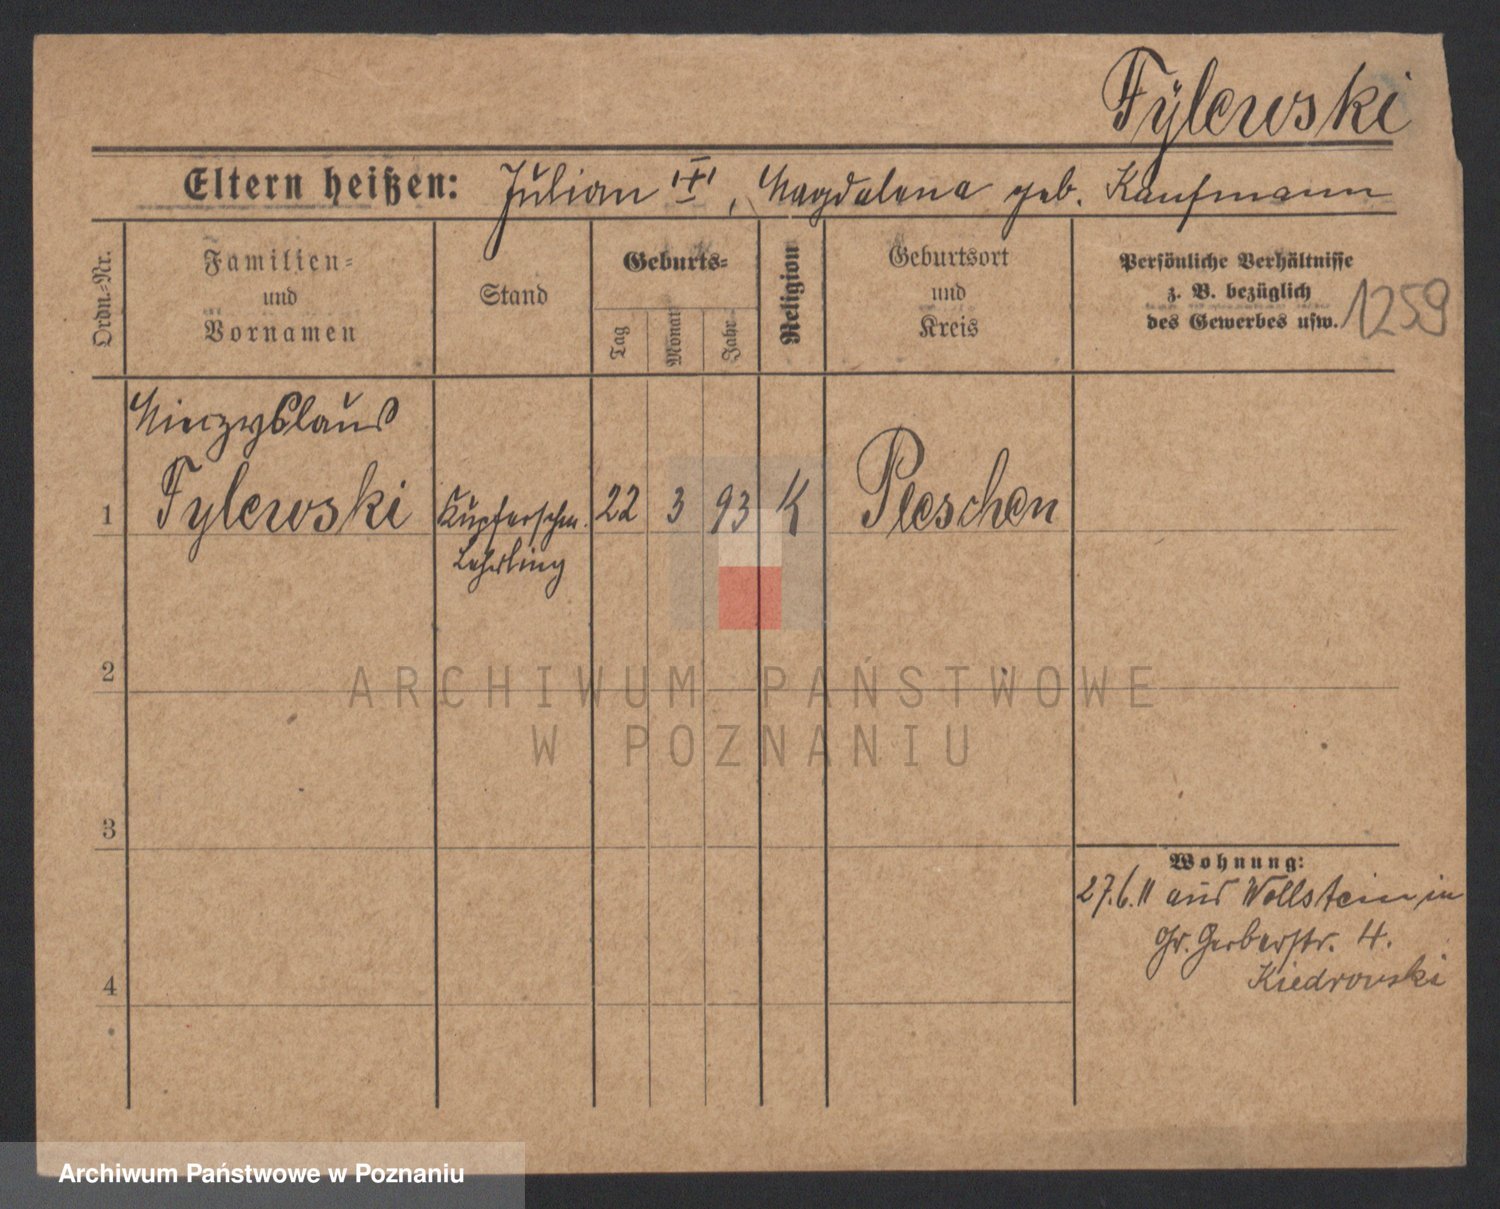 Fylewski
Eltern heißen: Julian III, Magdalena geb. Kaufmann
Ordn.-Nr.
Familien-
und
Vornamen
Stand
Geburts-
Tag
Monat
Jahr
Religion
Geburtsort
und
Kreis
Persönliche Verhältnisse
z. B. bezüglich
des Gewerbes usw.
1259
Mieczyslaus
1 Fylewski Kupferschm. 22 3 93 K Pleschen
Lehrling
2
3
4
Wohnung:
27.6.11 aus Wollstein in
Gr. Gerberstr. 4.
Kiedrowski
ARCHIWUM PAŃSTWOWE
W POZNANIU
Archiwum Państwowe w Poznaniu